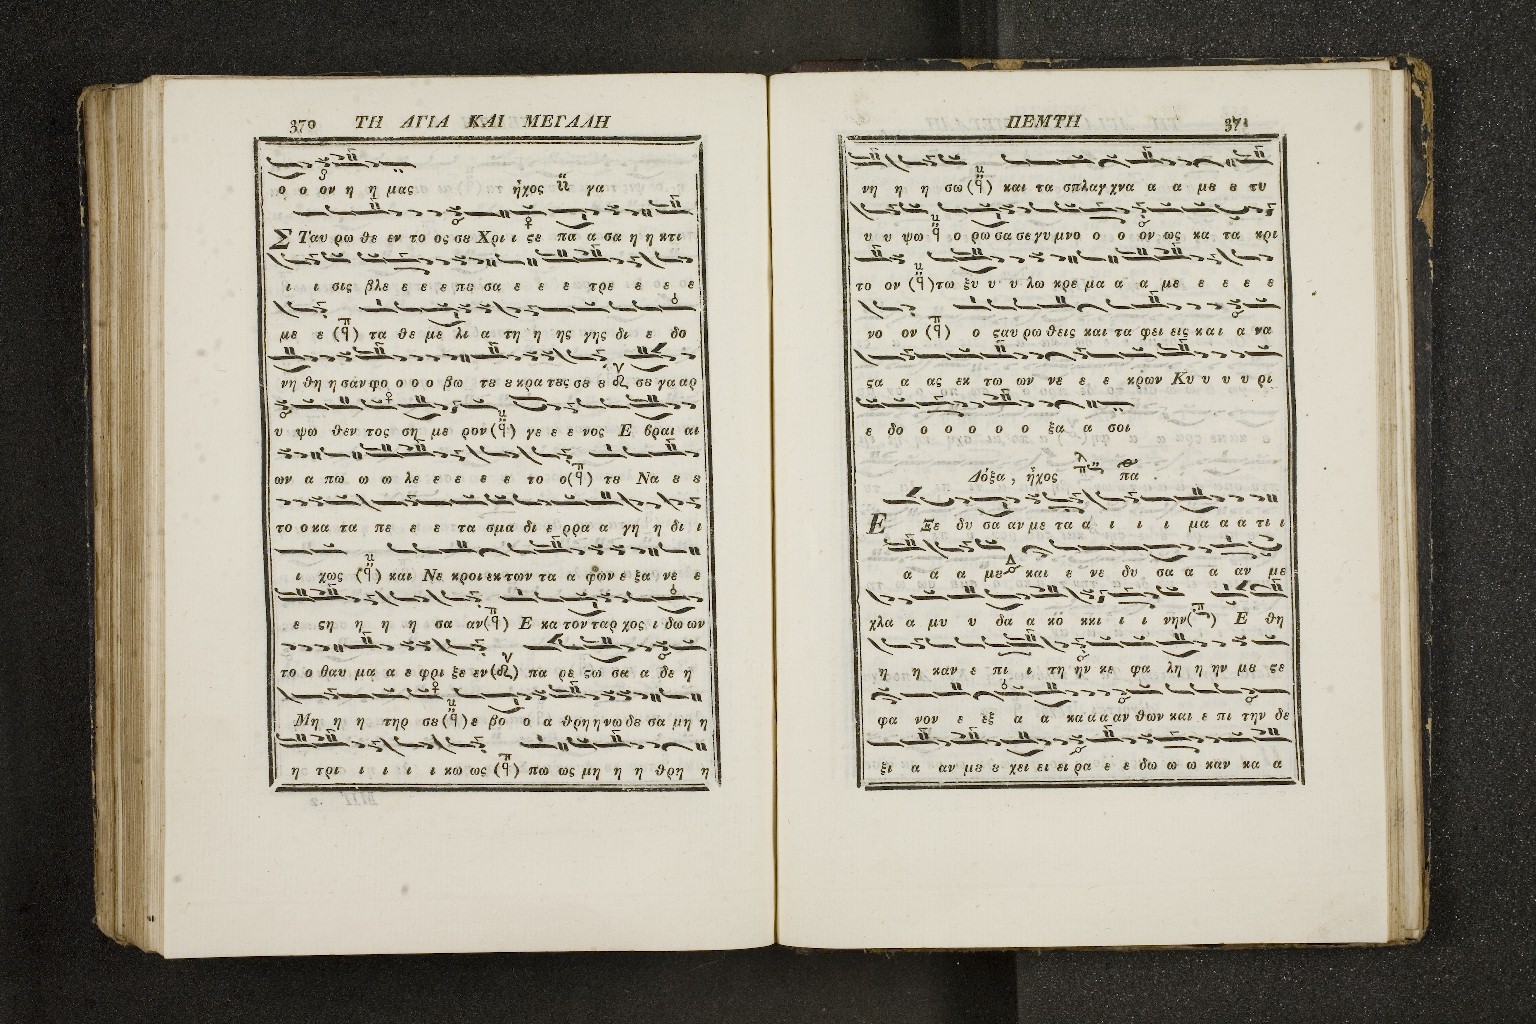 370 ΤΗ ΑΓΙΑ ΚΑΙ ΜΕΓΑΛΗ
ο ο ον η η μας ἦχος γα
Σ Ταυ ρω θε εν το ος σε Χρι ι ςε πα α σα η η κτι
ι ι σις βλε ε ε ε πε σα ε ε ε τρε ε ε ε
με ε (π) τα θε με λι α τη η ης γης δι ε δο
νη θη η σαν φο ο ο ο βω τȣ ȣ κρα τȣς σȣ ȣ σε γα αρ
υ ψω θεν τος ση με ρον γε ε ε νος Ε βραι αι
ων α πω ω ω λε ε ε ε ε το ο (π) τȣ Να ȣ ȣ
το ο κα τα πε ε ε τα σμα δι ε ρρα α γη η δι ι
ι χως και Νε κροι εκ των τα α φων ε ξα νε ε
ε ςη η η η σα αν (π) Ε κα τον ταρ χος ι δω ων
το ο θαυ μα α ε φρι ξε εν πα ρε ςω σα α δε η
Μη η η τηρ σȣ ε βο ο α θρη η νω δε σα μη η
η τρι ι ι ι ι κω ως (π) πω ως μη η η θρη η
ΠΕΜΤΗ 371
νη η η σω και τα σπλαγ χνα α α μȣ ȣ τυ
υ υ ψω ο ρω σα σε γυ μνο ο ο ον ως κα τα κρι
το ον τω ξυ υ υ λω κρε μα α α με ε ε ε ε
νο ον (π) ο ςαυ ρω θεις και τα φει εις και α να
ςα α ας εκ τω ων νε ε ε κρων Κυ υ υ υ ρι
ε δο ο ο ο ο ο ξα α σοι
Δόξα, ἦχος πα
Ε Ξε δυ σα αν με τα α ι ι ι μα α α τι ι
α α α μȣ Δ και ε νε δυ σα α α αν με
χλα α μυ υ δα α κό κκι ι ι νην Ε θη
η η καν ε πι ι τη ην κε φα λη η ην μȣ ςε
φα νον ε εξ α α κα α α αν θων και ε πι την δε
ξι α αν μȣ ȣ χει ει ει ρα ε ε δω ω ω καν κα α